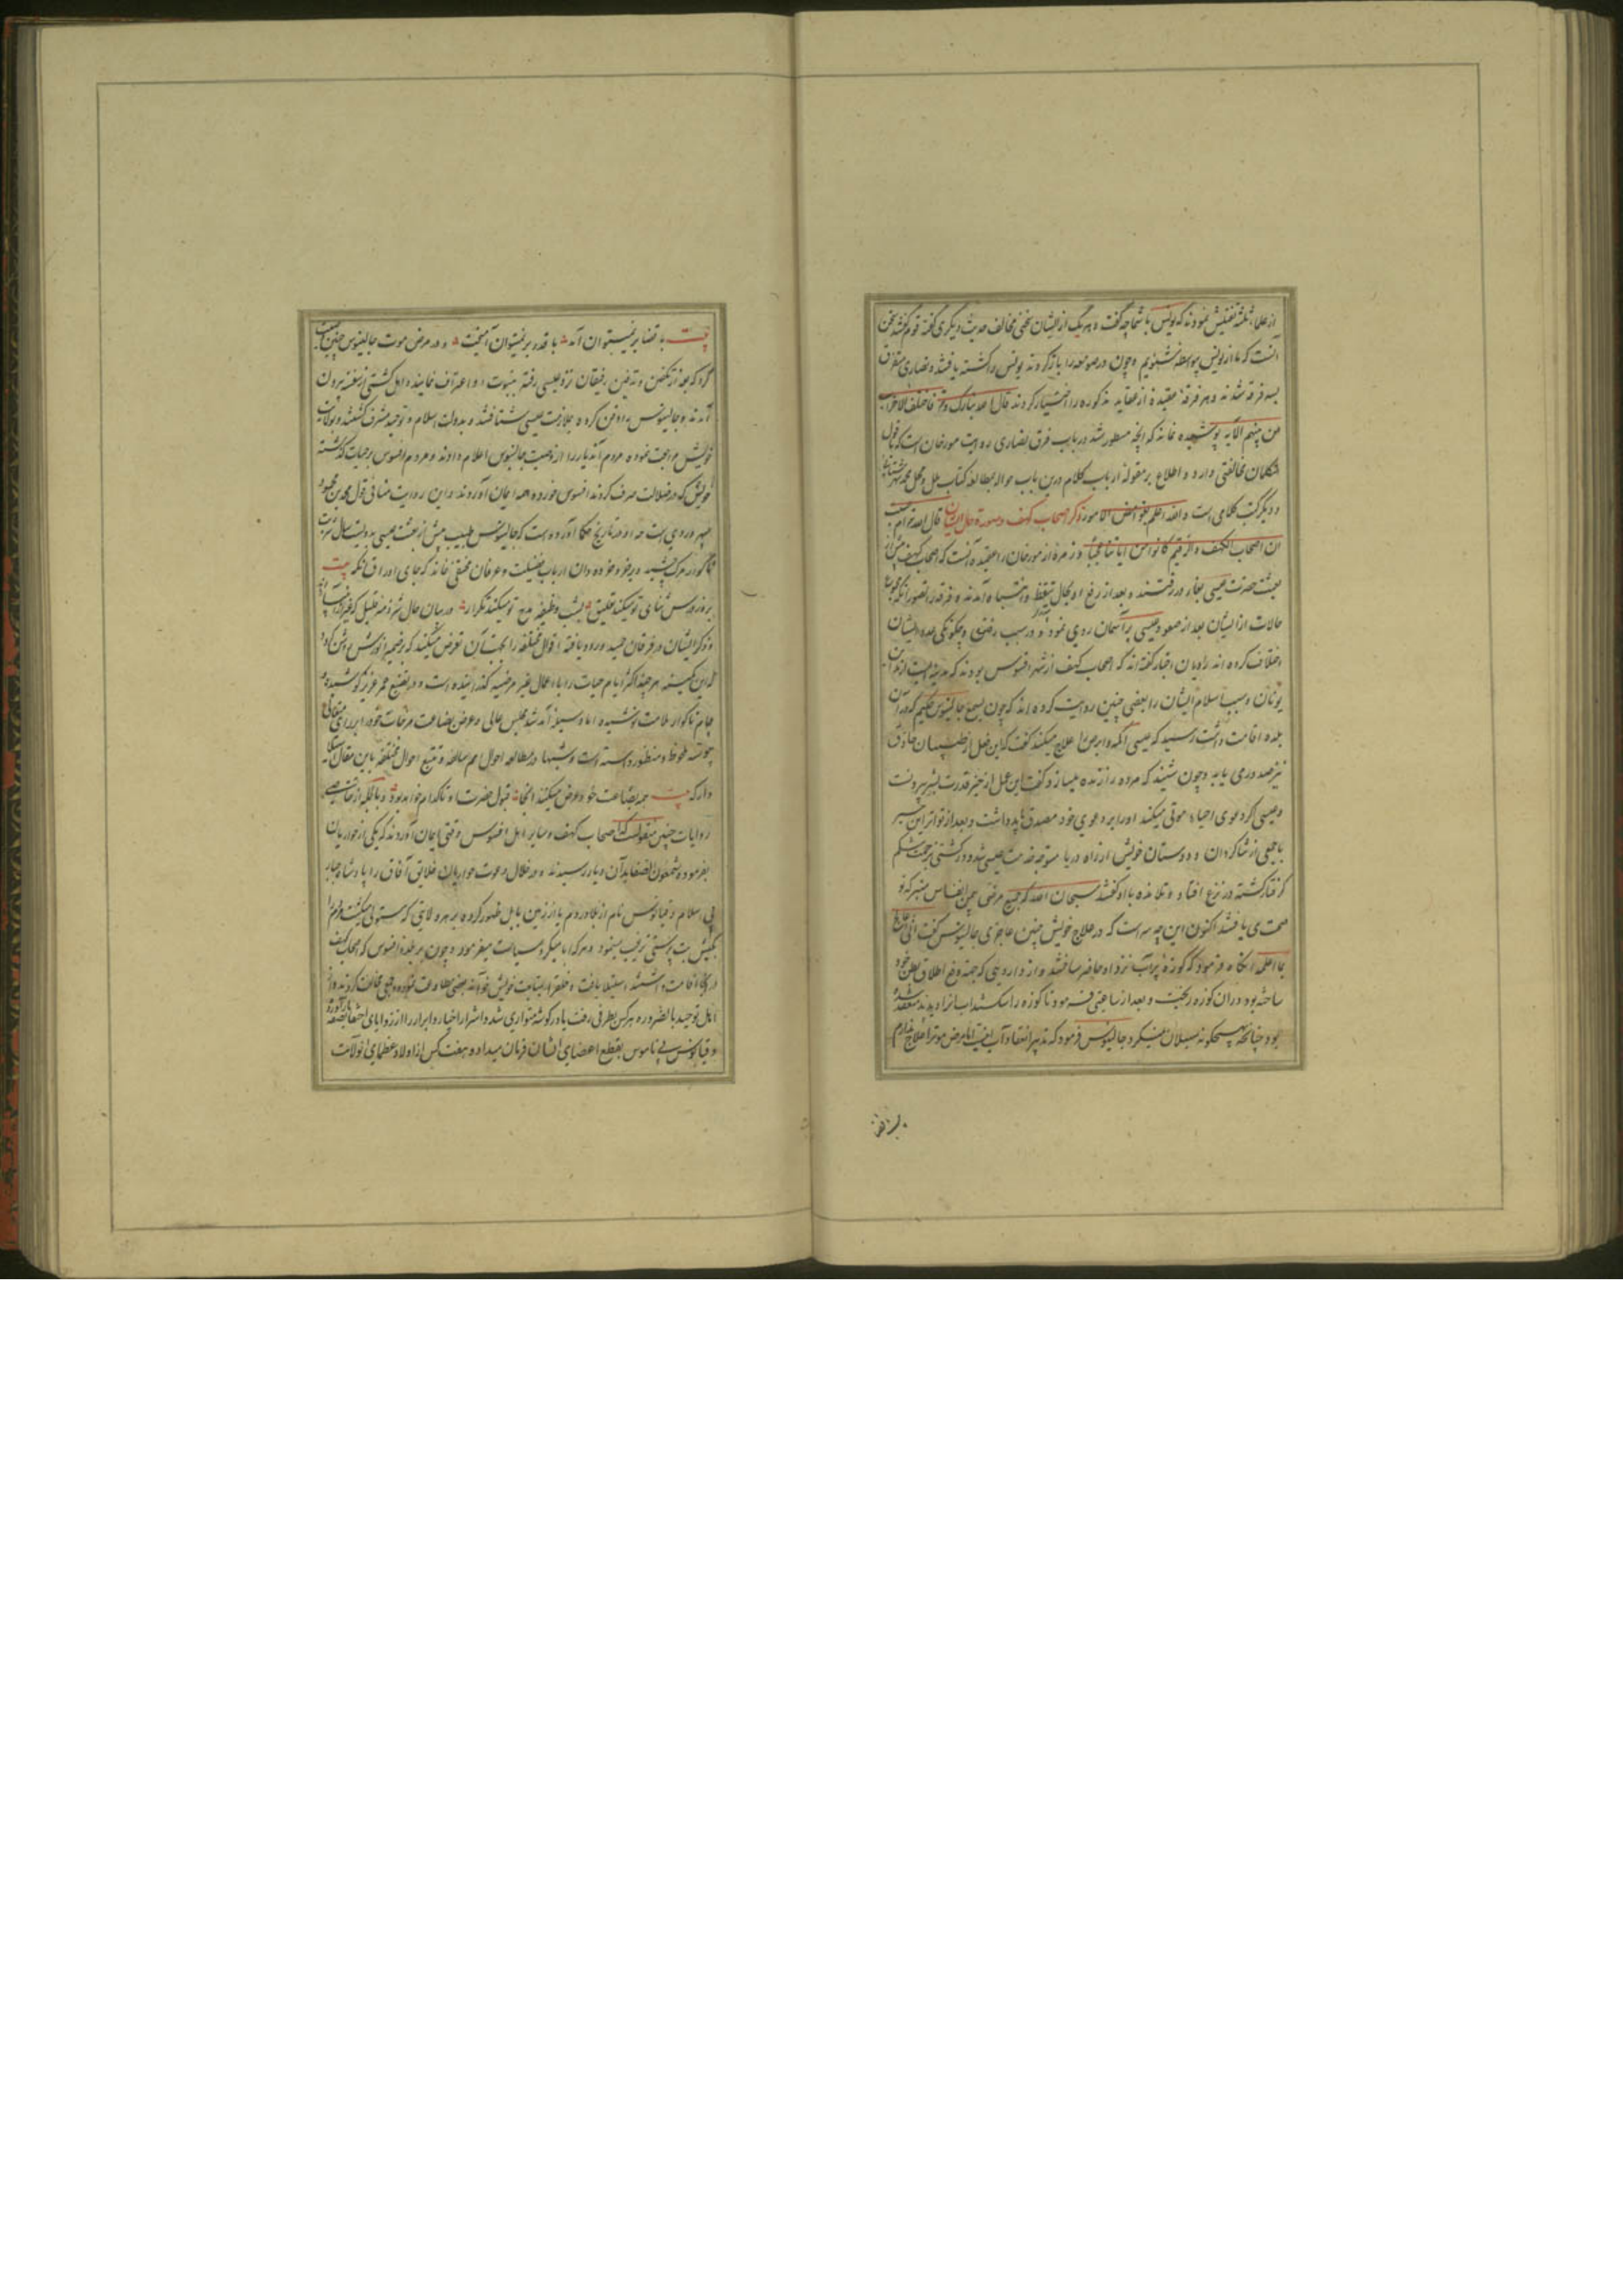 از علماء ثلثه تفتیش نمودند که یونس با شما چه گفت و هر یک از ایشان سخنی مخالف حدیث دیگری گفته قوم گفتند سخن
آنست که ما از یونس بواسطه شنویم و چون در صومعه را باز کردند یونس را کشته یافتند و نصاری متفرق
بسه فرقه شدند و هر فرقه عقیده از عقاید مذکوره را اختیار کردند قال الله تبارک و تع فاختلف الاحزاب
من بینهم الآیه پوشیده نماند که آنچه مسطور شد در باب فرق نصاری روایت مورخان است که با قول
متکلمان مخالفتی دارد و اطلاع بر مقوله ارباب کلام درین باب حواله بمطالعه کتاب ملل و نحل محمد شهرستانی
و دیگر کتب کلامی است والله اعلم بغوامض الامور ذکر اصحاب کهف و صورت حال ایشان قال الله تع ام حسبت
ان اصحاب الکهف و الرقیم کانوا من ایاتنا عجبا و زمره از مورخان را عقیده آنست که اصحاب کهف پیش از
بعثت حضرت عیسی بغار در رفتند و بعد از رفع او بحال تیقظ و انتباه آمدند و فرقه را تصور آنکه مجموع
حالات از ایشان بعد از صعود عیسی بر آسمان روی نمود و در سبب رفتن و چگونگی ایشان
اختلاف کرده اند راویان اخبار گفته اند که اصحاب کهف از شهر افسوس بودند که مدینه ایست از مداین
یونان و سبب اسلام ایشان را بعضی چنین روایت کرده اند که چون بسمع جالینوس حکیم که در آن
بلده اقامت داشت رسید که عیسی اکمه و ابرص را علاج میکند گفت که این فعل از طبیبان حاذق
نیز صدوری یابد و چون شنید که مرده را زنده میسازد گفت این عمل از حیز قدرت بشر بیرونست
و عیسی که دعوی احیاء موتی میکند او را بر دعوی خود مصدق باید داشت و بعد از تواتر این خبر
با جمعی از شاگردان و دوستان خویش از راه دریا متوجه خدمت عیسی شد و در کشتی بزحمت شکم
گرفتار گشته در نزع افتاد و تلامذه با او گفتند سبحان الله که جمیع مرضی بیمن انفاس متبرکه تو
صحت می یافتند اکنون این چه سر است که در علاج خویش چنین عاجزی جالینوس گفت
آنگاه فرمود که کوزه پر آب نزد او حاضر ساختند و از دارویی که جهت دفع اطلاق بطن خود
ساخته بود در آن کوزه ریخت و بعد از ساعتی فرمود تا کوزه را شکستند آب را دیدند منعقد شده
بود چنانچه بهیچگونه سیلان نمیکرد جالینوس فرمود که تدبیر انعقاد آب اینست اما مرض موت را علاج ندارم
بیت با قضا بر نمیتوان آمد با قدر بر نمیتوان آمیخت و در مرض موت جالینوس چنین وصیت
کرد که بعد از تکفین و تدفین رفیقان نزد عیسی رفته بنبوت او اعتراف نمایند و اهل کشتی از سفینه بیرون
آمدند و جالینوس را دفن کرده بملازمت عیسی شتافتند و بدولت اسلام و توحید مشرف گشتند و بمکان
خویش مراجعت نموده مردم آن دیار را از وصیت جالینوس اعلام دادند و مردم افسوس بر حیات گذشته
خویش که در ضلالت صرف کردند افسوس خورده همه ایمان آوردند و این روایت منافی قول محمد بن محمود
سهروردی است چه او در تاریخ حکما آورده است که جالینوس طبیب پیش از بعثت عیسی به دویست سال شربت
ناگوار مرگ چشید و بر خرده دان ارباب فضیلت و عرفان مخفی نماند که جای اوراق آنکه بیت
بروز درس ثنای تو میکند تعلیق بشب وظیفه مدح تو میکند تکرار در بیان حال شرذمه قلیل که
و ذکر ایشان در فرقان مجید ورود یافته اقوال مختلفه را بجهت آن تعرض میکند که بر ضمیر انورش روشن گردد
که این کمینه هر چند اکثر ایام حیات را با اعمال غیر مرضیه گذرانیده است و در تضییع عمر عزیز کوشیده و
جام ناگوار ملامت نوشیده اما وسیله آمد شد مجلس عالی و عرض بضاعت مزجات خود
پیوسته ملحوظ و منظور داشته است و شبها در مطالعه احوال امم سالفه و تتبع اقوال مختلفه
دارد که بیت همه بضاعت خود عرض میکنند آنجا قبول حضرت او تا کدام خواهد بود و بالجمله از
روایات چنین منقول است که اصحاب کهف و سایر اهل افسوس وقتی ایمان آوردند که یکی از حواریان
بفرموده شمعون الصفا بدان دیار رسیدند و در خلال دعوت حواریان خلایق آفاق را پادشاه جبار
بی اسلام دقیانوس نام از بلاد روم یا از زمین بابل ظهور کرده بر هر ولایتی که مستولی میگشت مردم را
بکیش بت پرستی ترغیب مینمود و هر که ابا میکرد سیاست میفرمود و چون بر بلده افسوس که اصحاب کهف
در آنجا اقامت داشتند استیلا یافت و خلق را بمتابعت خویش خواند بعضی مطاوعت نموده و جمعی مخالفت کردند و از
اهل توحید بالضرورة هر کس بطرفی رفت یا در گوشه متواری شد و اشرار اخیار و ابرار را از زوایای اختفا
دقیانوس بی ناموس بقطع اعضای ایشان فرمان میداد و هفت کس از اولاد عظمای آن ولایت